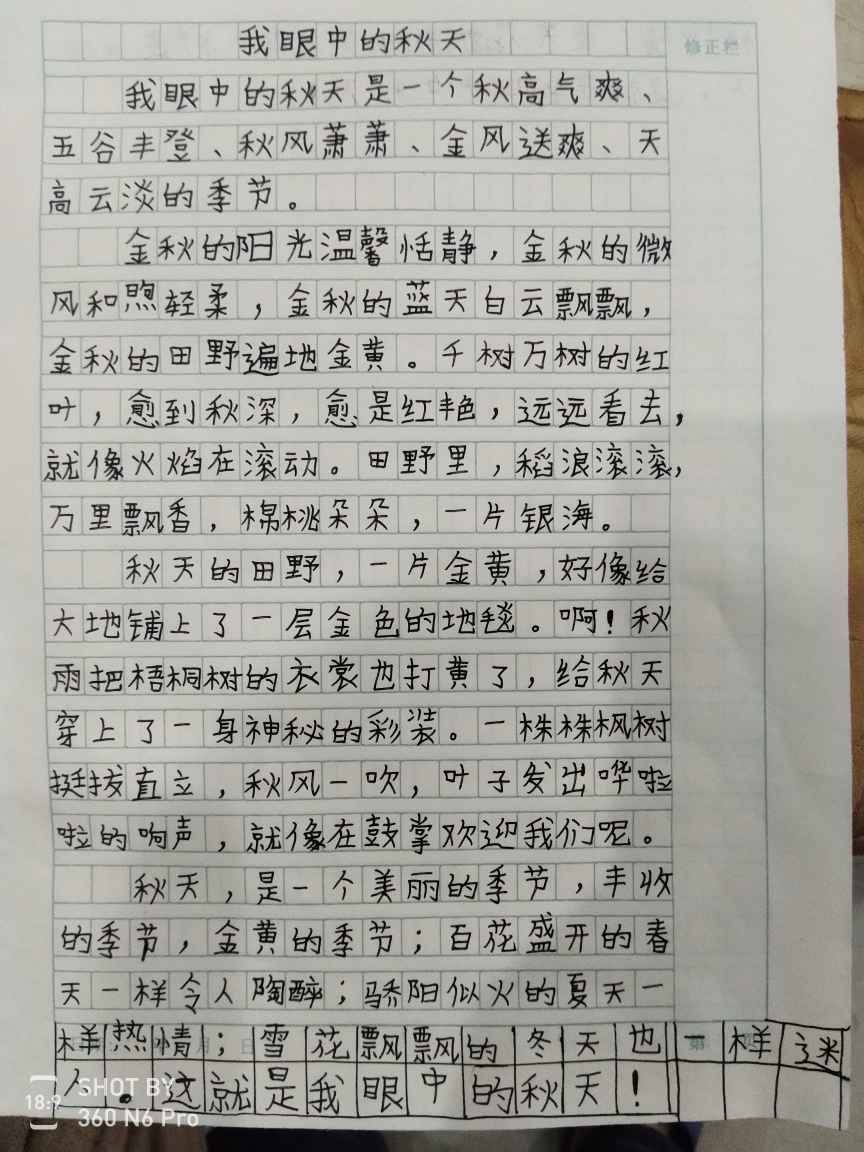 我眼中的秋天
修正栏
我眼中的秋天是一个秋高气爽、
五谷丰登、秋风萧萧、金风送爽、天
高云淡的季节。
金秋的阳光温馨恬静，金秋的微
风和煦轻柔，金秋的蓝天白云飘飘，
金秋的田野遍地金黄。千树万树的红
叶，愈到秋深，愈是红艳，远远看去，
就像火焰在滚动。田野里，稻浪滚滚，
万里飘香，棉桃朵朵，一片银海。
秋天的田野，一片金黄，好像给
大地铺上了一层金色的地毯。啊！秋
雨把梧桐树的衣裳也打黄了，给秋天
穿上了一身神秘的彩装。一株株枫树
挺拔直立，秋风一吹，叶子发出哗啦
啦的响声，就像在鼓掌欢迎我们呢。
秋天，是一个美丽的季节，丰收
的季节，金黄的季节；百花盛开的春
天一样令人陶醉；骄阳似火的夏天一
样热情；雪花飘飘的冬天也一样迷
人。这就是我眼中的秋天！
18:9 SHOT BY
360 N6 Pro